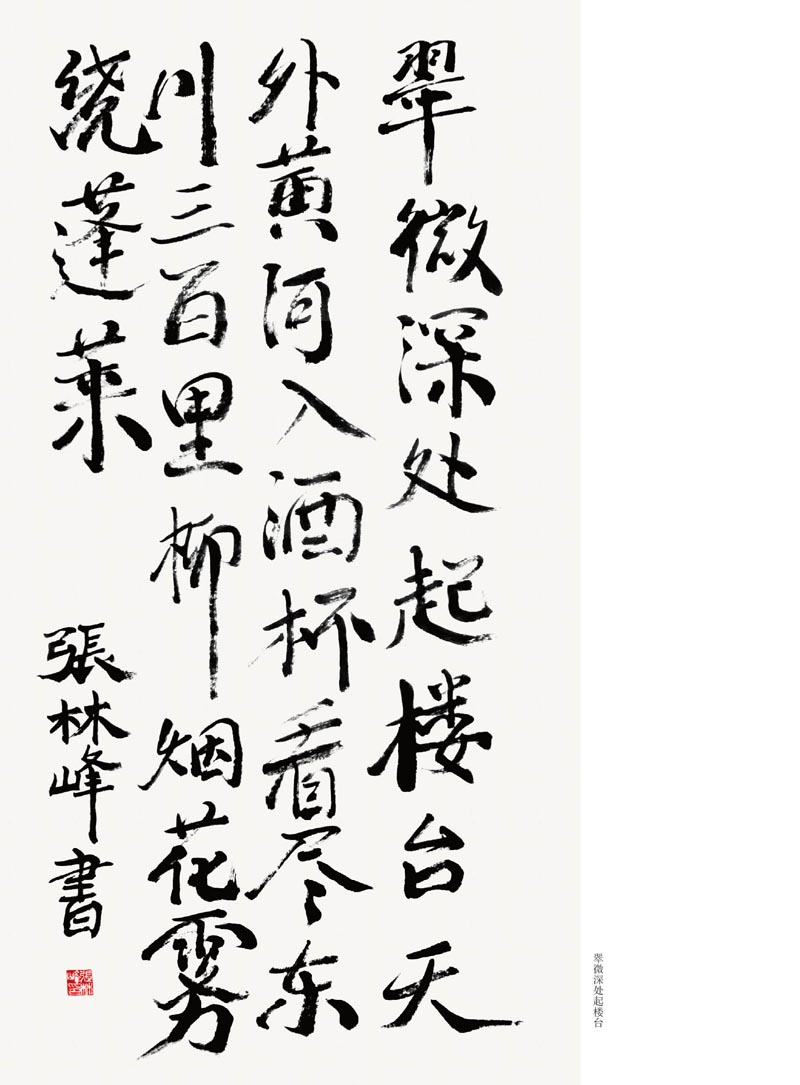 翠微深处起楼台天
外黄河入酒杯看尽东
川三百里柳烟花雾
绕蓬莱
張林峰書
翠微深处起楼台